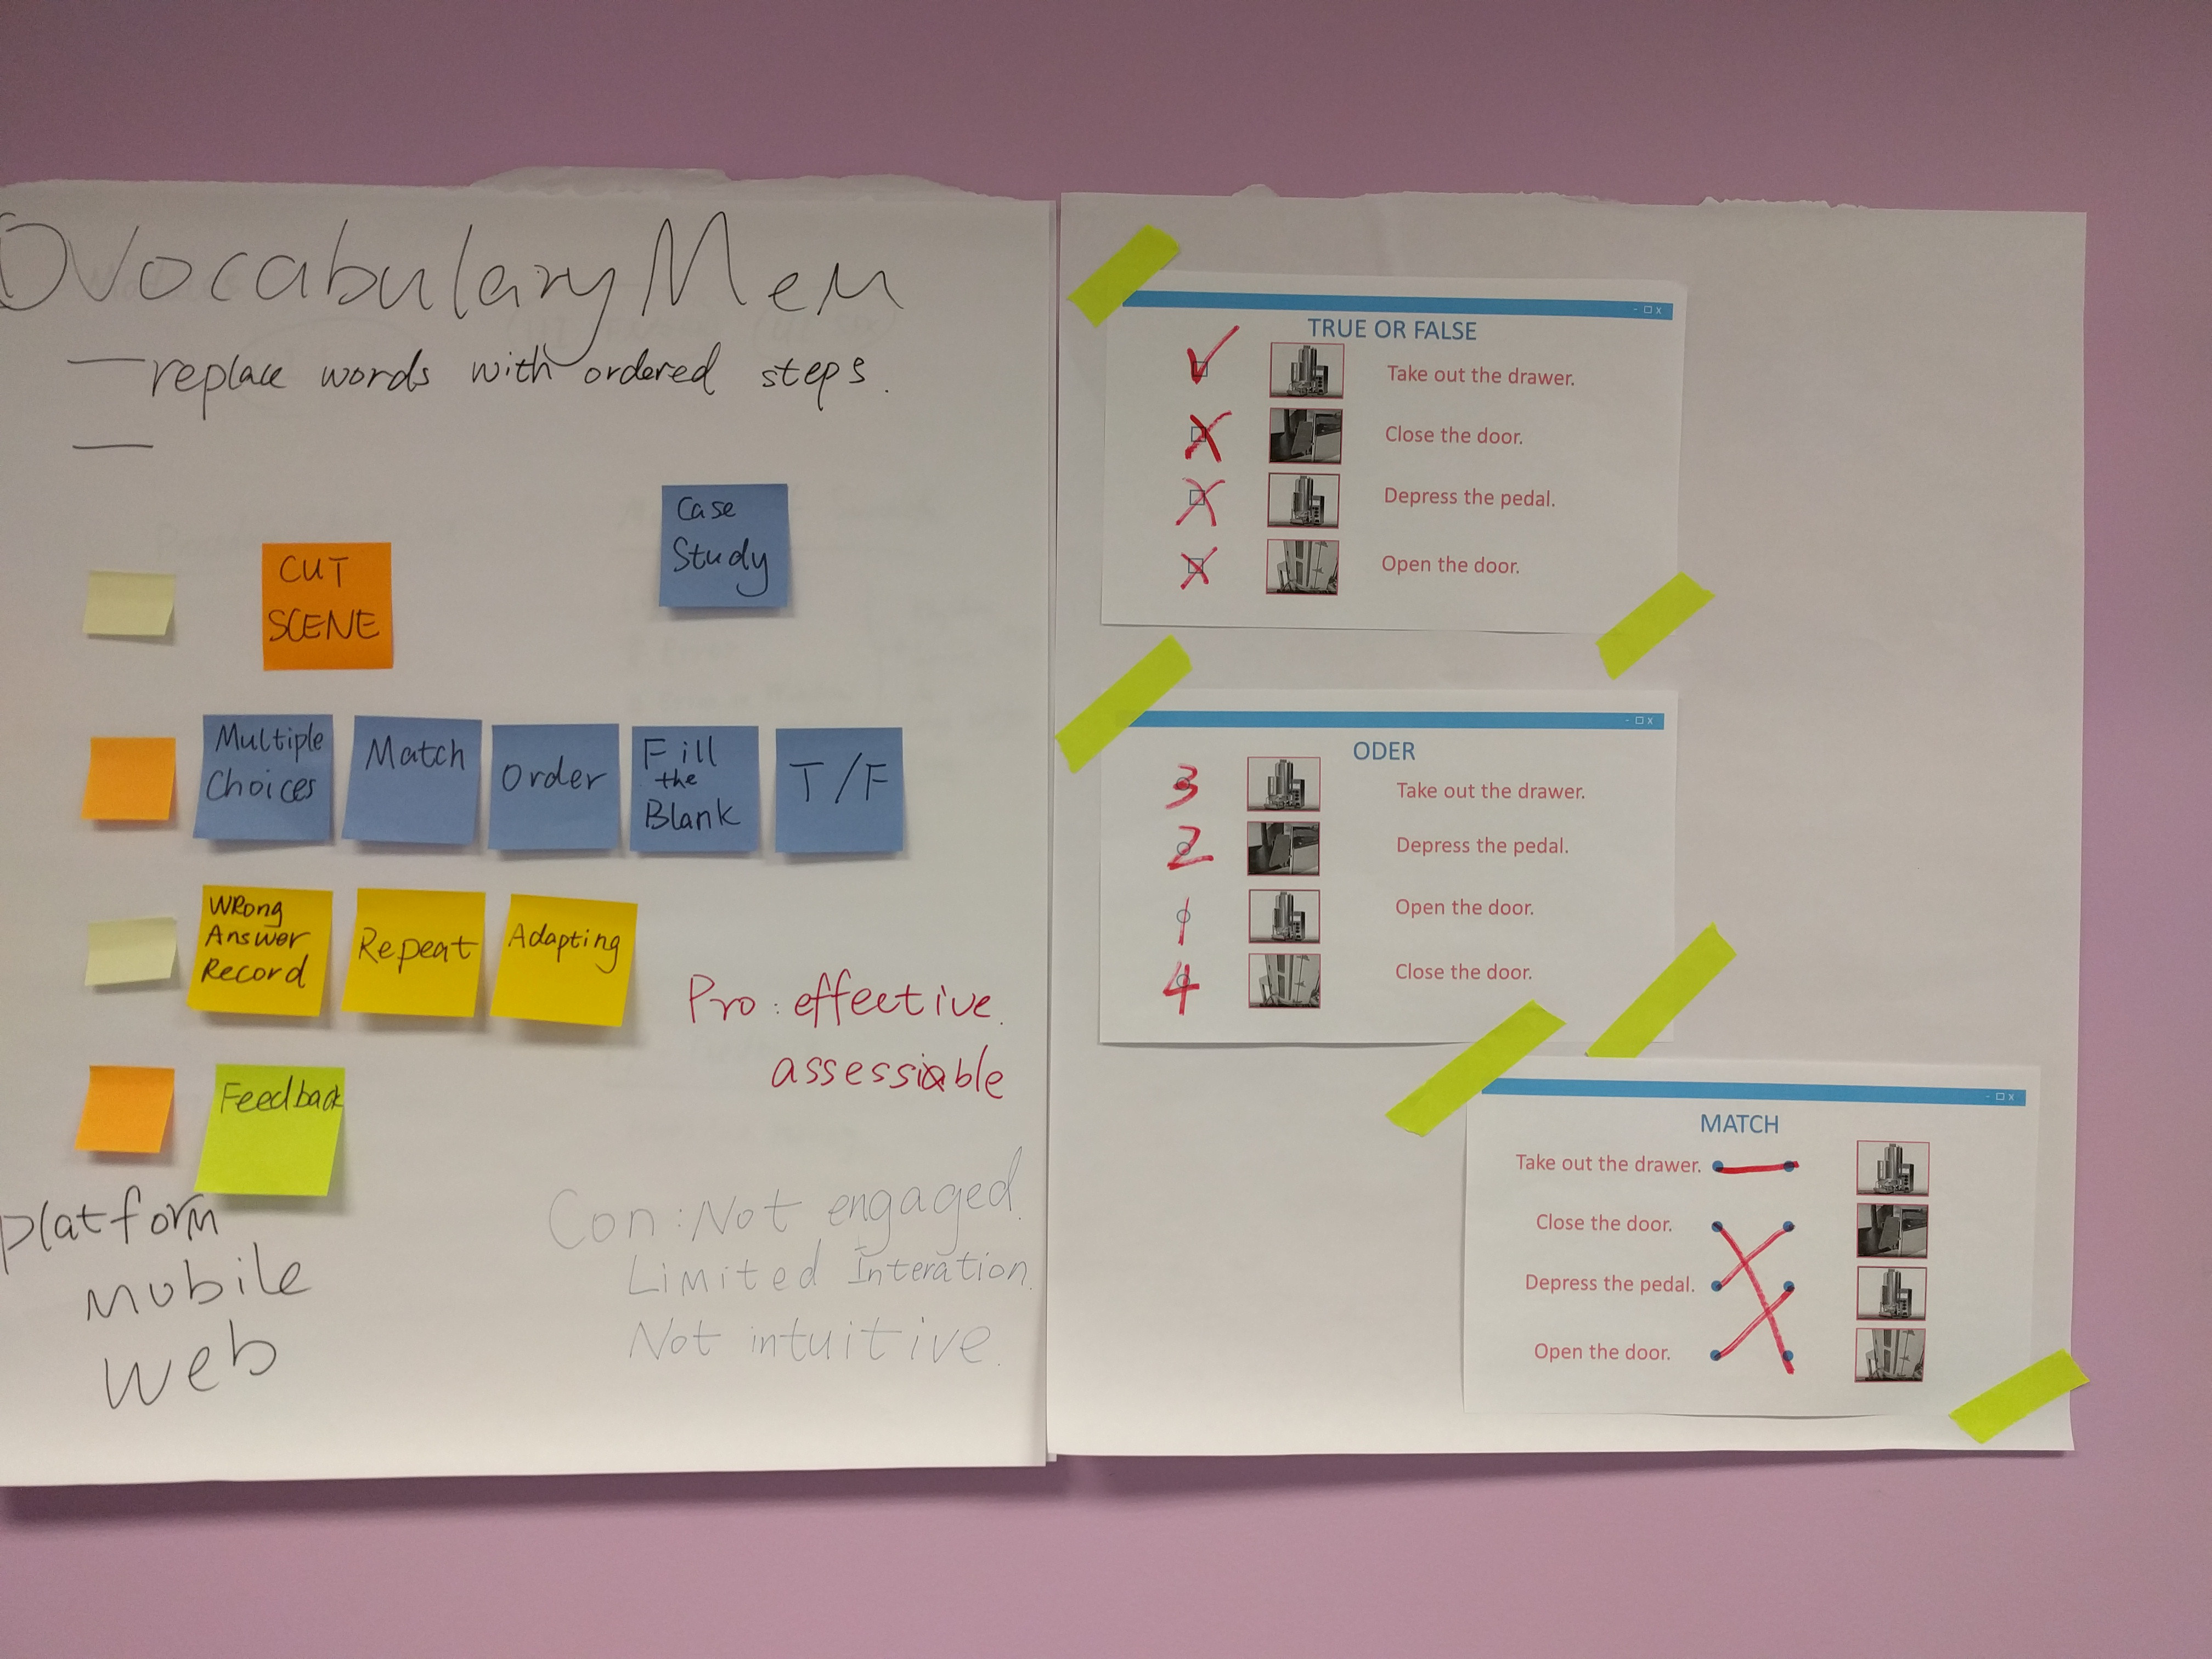 Vocabulary Mem
— replace words with ordered steps.
—
CUT
SCENE
Case
Study
Multiple
Choices
Match
Order
Fill
the
Blank
T/F
WRong
Answer
Record
Repeat
Adapting
Pro: effective.
assessiable
Feedback
Con: Not engaged.
Limited Interation.
Not intuitive.
platform
mobile
web
TRUE OR FALSE
Take out the drawer.
Close the door.
Depress the pedal.
Open the door.
ODER
3 Take out the drawer.
2 Depress the pedal.
1 Open the door.
4 Close the door.
MATCH
Take out the drawer.
Close the door.
Depress the pedal.
Open the door.